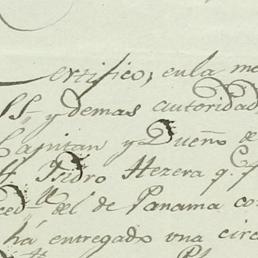 Certifico, en la me
SS y demas autoridad
Capitan y Dueño de
Isidro Hezera q.e
del de Panama co
há entregado vna circ